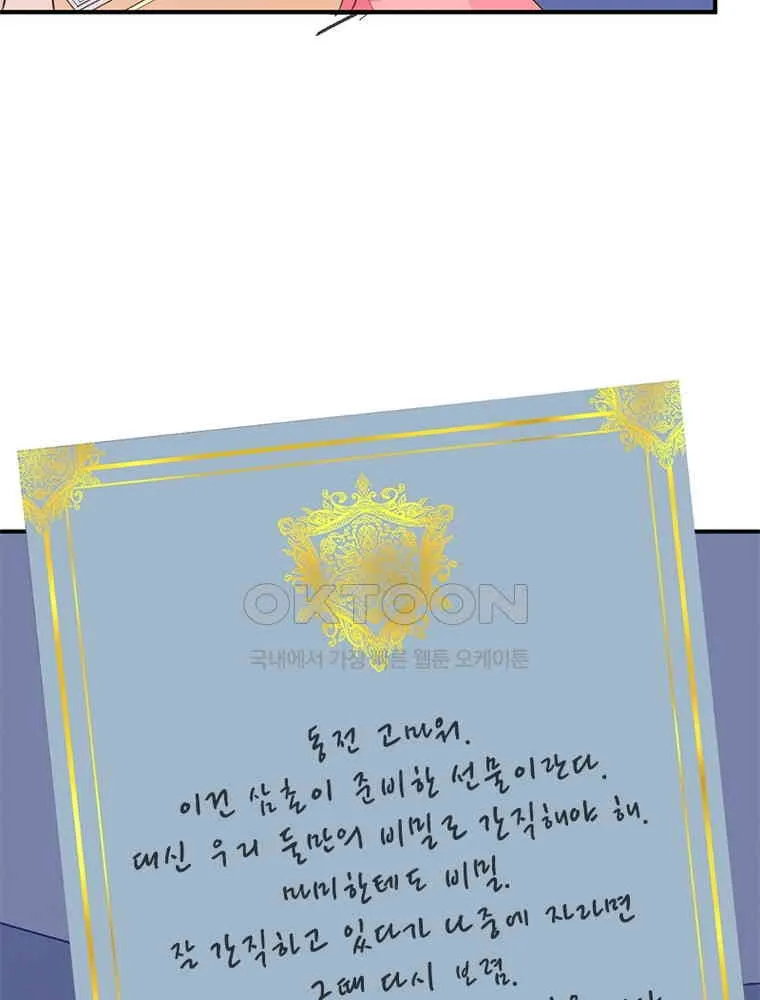 OKTOON
국내에서 가장 빠른 웹툰 오케이툰
동전 고마워.
이건 삼촌이 준비한 선물이란다.
대신 우리 둘만의 비밀로 간직해야 해.
미미한테도 비밀.
잘 간직하고 있다가 나중에 자라면
그때 다시 보렴.